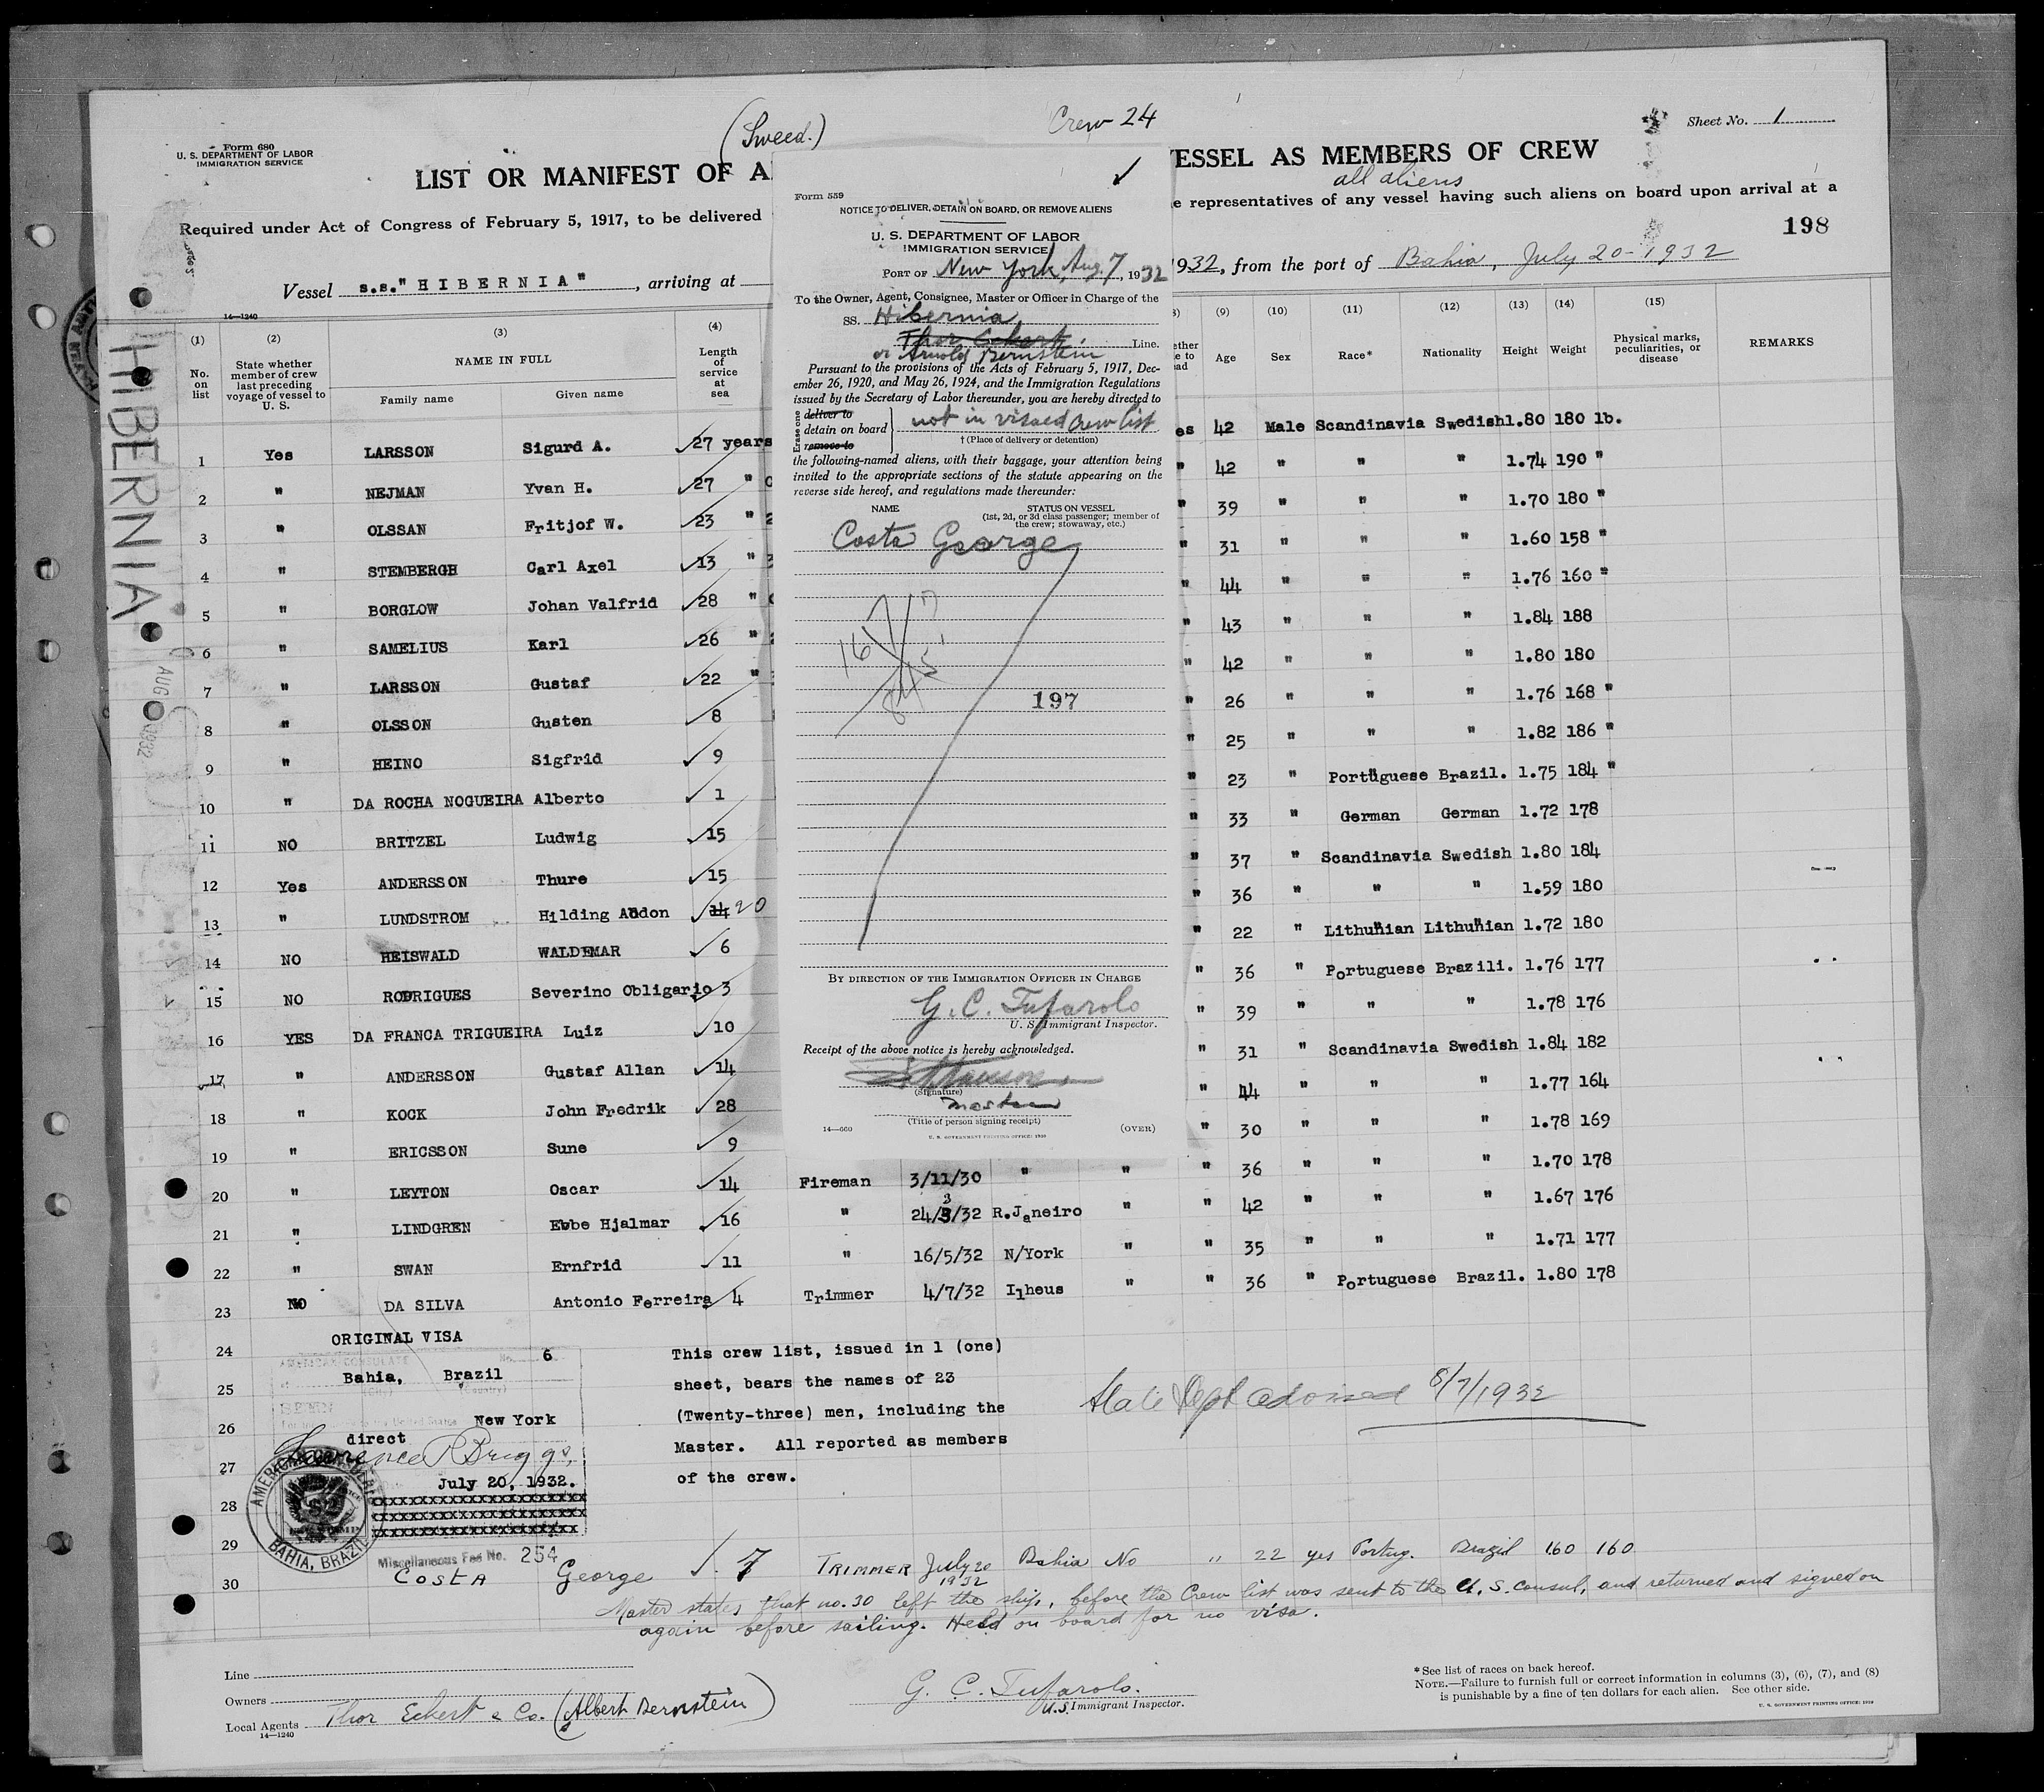 (Sweed.)
Crew 24
Sheet No. 1
Form 680
U. S. DEPARTMENT OF LABOR
IMMIGRATION SERVICE
LIST OR MANIFEST OF A
VESSEL AS MEMBERS OF CREW
all aliens
Required under Act of Congress of February 5, 1917, to be delivered
e representatives of any vessel having such aliens on board upon arrival at a
198
Vessel s.s."HIBERNIA", arriving at
1932, from the port of Bahia, July 20-1932
14—1240
HIBERNIA
AUG
1932
(1) (2) (3) (4) (9) (10) (11) (12) (13) (14) (15)
No. on list
State whether member of crew last preceding voyage of vessel to U. S.
NAME IN FULL
Family name Given name
Length of service at sea
Age Sex Race* Nationality Height Weight
Physical marks, peculiarities, or disease
REMARKS
1 Yes LARSSON Sigurd A. 27 years es 42 Male Scandinavia Swedish 1.80 180 lb.
2 " NEJMAN Yvan H. 27 " " 42 " " " 1.74 190 "
3 " OLSSAN Fritjof W. 23 " " 39 " " " 1.70 180 "
4 " STEMBERGH Carl Axel 13 " " 31 " " " 1.60 158 "
5 " BORGLOW Johan Valfrid 28 " " 44 " " " 1.76 160 "
6 " SAMELIUS Karl 26 " " 43 " " " 1.84 188
7 " LARSSON Gustaf 22 " " 42 " " " 1.80 180
8 " OLSSON Gusten 8 " 26 " " " 1.76 168 "
9 " HEINO Sigfrid 9 " 25 " " " 1.82 186 "
10 " DA ROCHA NOGUEIRA Alberto 1 " 23 " Portuguese Brazil. 1.75 184 "
11 NO BRITZEL Ludwig 15 " 33 " German German 1.72 178
12 Yes ANDERSSON Thure 15 " 37 " Scandinavia Swedish 1.80 184
13 " LUNDSTROM Hilding Audon 14 20 " 36 " " " 1.59 180
14 NO HEISWALD WALDEMAR 6 " 22 " Lithunian Lithunian 1.72 180
15 NO RODRIGUES Severino Obligario 3 " 36 " Portuguese Brazili. 1.76 177
16 YES DA FRANCA TRIGUEIRA Luiz 10 " 39 " " " 1.78 176
17 " ANDERSSON Gustaf Allan 14 " 31 " Scandinavia Swedish 1.84 182
18 " KOCK John Fredrik 28 " 44 " " " 1.77 164
19 " ERICSSON Sune 9 " 30 " " " 1.78 169
20 " LEYTON Oscar 14 Fireman 3/11/30 " " " 36 " " " 1.70 178
21 " LINDGREN Ebbe Hjalmar 16 " 24/3/32 R.Janeiro " " 42 " " " 1.67 176
22 " SWAN Ernfrid 11 " 16/5/32 N/York " " 35 " " " 1.71 177
23 NO DA SILVA Antonio Ferreira 4 Trimmer 4/7/32 Ilheus " " 36 " Portuguese Brazil. 1.80 178
24
25
26
27
28
29
ORIGINAL VISA
AMERICAN CONSULATE No. 6
Bahia, Brazil
(City) (Country)
SEEN
New York
direct
Clarence R Briggs,
July 20, 1932.
AMERICAN CONSULATE
BAHIA, BRAZIL
Miscellaneous Fee No. 254
This crew list, issued in 1 (one)
sheet, bears the names of 23
(Twenty-three) men, including the
Master. All reported as members
of the crew.
State Dept advised 8/7/1932
30 COSTA George 7 TRIMMER July 20 1932 Bahia No " 22 yes Portug. Brazil 160 160
Master states that no. 30 left the ship, before the Crew list was sent to the U. S. consul, and returned and signed on
again before sailing. Held on board for no visa.
Line
Owners
Local Agents Thor Eckert & Co. (Albert Bernstein)
14—1240
G. C. Tufarolo.
U.S. Immigrant Inspector.
*See list of races on back hereof.
NOTE.—Failure to furnish full or correct information in columns (3), (6), (7), and (8)
is punishable by a fine of ten dollars for each alien. See other side.
Form 559
NOTICE TO DELIVER, DETAIN ON BOARD, OR REMOVE ALIENS
U. S. DEPARTMENT OF LABOR
IMMIGRATION SERVICE
PORT OF New York, Aug. 7, 1932
To the Owner, Agent, Consignee, Master or Officer in Charge of the
SS. Hibernia
Thor Eckert Line.
or Arnold Bernstein
Pursuant to the provisions of the Acts of February 5, 1917, Dec-
ember 26, 1920, and May 26, 1924, and the Immigration Regulations
issued by the Secretary of Labor thereunder, you are hereby directed to
Erase one
deliver to
detain on board
remove to
not in visaed crew list
† (Place of delivery or detention)
the following-named aliens, with their baggage, your attention being
invited to the appropriate sections of the statute appearing on the
reverse side hereof, and regulations made thereunder:
NAME STATUS ON VESSEL
(1st, 2d, or 3d class passenger; member of
the crew; stowaway, etc.)
Costa George
167
197
BY DIRECTION OF THE IMMIGRATION OFFICER IN CHARGE
G. C. Tufarolo
U. S. Immigrant Inspector.
Receipt of the above notice is hereby acknowledged.
(Signature)
Master
(Title of person signing receipt)
14—660
(OVER)
U. S. GOVERNMENT PRINTING OFFICE: 1930